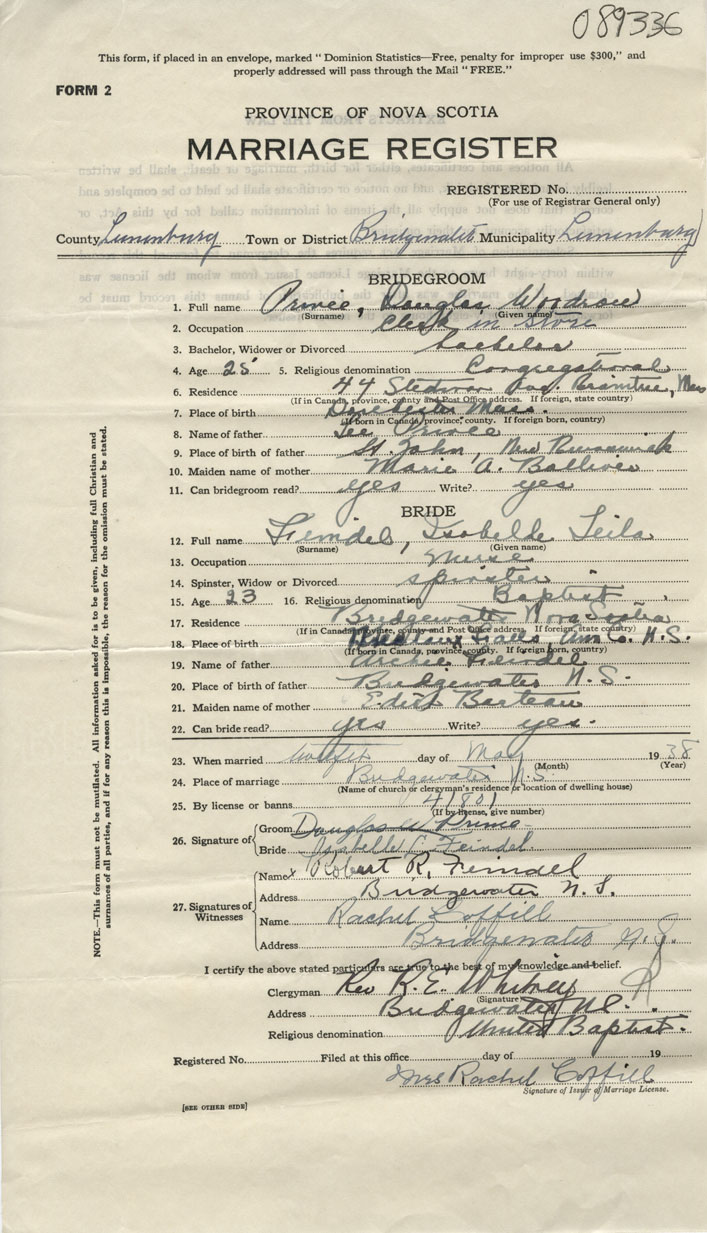 089336
This form, if placed in an envelope, marked "Dominion Statistics—Free, penalty for improper use $300," and
properly addressed will pass through the Mail "FREE."
FORM 2
PROVINCE OF NOVA SCOTIA
MARRIAGE REGISTER
REGISTERED No.
(For use of Registrar General only)
County Lunenburg Town or District Bridgewater Municipality Lunenburg
BRIDEGROOM
1. Full name Prince, Douglas Woodrow
(Surname) (Given name)
2. Occupation Clerk in Store
3. Bachelor, Widower or Divorced bachelor
4. Age 25 5. Religious denomination Congregational
6. Residence 44 Braintree, Mass
(If in Canada, province, county and Post Office address. If foreign, state country)
7. Place of birth Dorchester Mass.
(If born in Canada, province, county. If foreign born, country)
8. Name of father Lee Prince
9. Place of birth of father St. John, New Brunswick
10. Maiden name of mother Marie A.
11. Can bridegroom read? yes Write? yes
BRIDE
12. Full name Feindel, Isabelle Leila
(Surname) (Given name)
13. Occupation Nurse
14. Spinster, Widow or Divorced spinster
15. Age 23 16. Religious denomination Baptist
17. Residence Bridgewater Nova Scotia
(If in Canada, province, county and Post Office address. If foreign, state country)
18. Place of birth Falls, Ann Co. N.S.
(If born in Canada, province, county. If foreign born, country)
19. Name of father Archie Feindel
20. Place of birth of father Bridgewater N.S.
21. Maiden name of mother Edith Barteau
22. Can bride read? yes Write? yes.
23. When married twelfth day of May 1938
(Month) (Year)
24. Place of marriage Bridgewater N.S.
(Name of church or clergyman's residence or location of dwelling house)
25. By license or banns 41801
(If by license, give number)
26. Signature of Groom Douglas W Prince
Bride Isabelle L. Feindel
27. Signatures of Witnesses
Name x Robert R. Feindel
Address Bridgewater N.S.
Name Rachel Coffill
Address Bridgewater N.S.
I certify the above stated particulars are true to the best of my knowledge and belief.
Clergyman Rev R.E. Whitney
(Signature)
Address Bridgewater N.S.
Religious denomination United Baptist.
Registered No. Filed at this office day of 19
Mrs Rachel Coffill
Signature of Issuer of Marriage License.
[SEE OTHER SIDE]
NOTE.—This form must not be mutilated. All information asked for is to be given, including full Christian and
surnames of all parties, and if for any reason this is impossible, the reason for the omission must be stated.